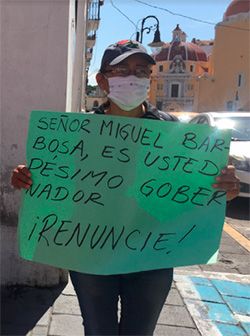 SEÑOR MIGUEL BAR-
BOSA, ES USTED
PÉSIMO GOBER
NADOR
¡RENUNCIE!